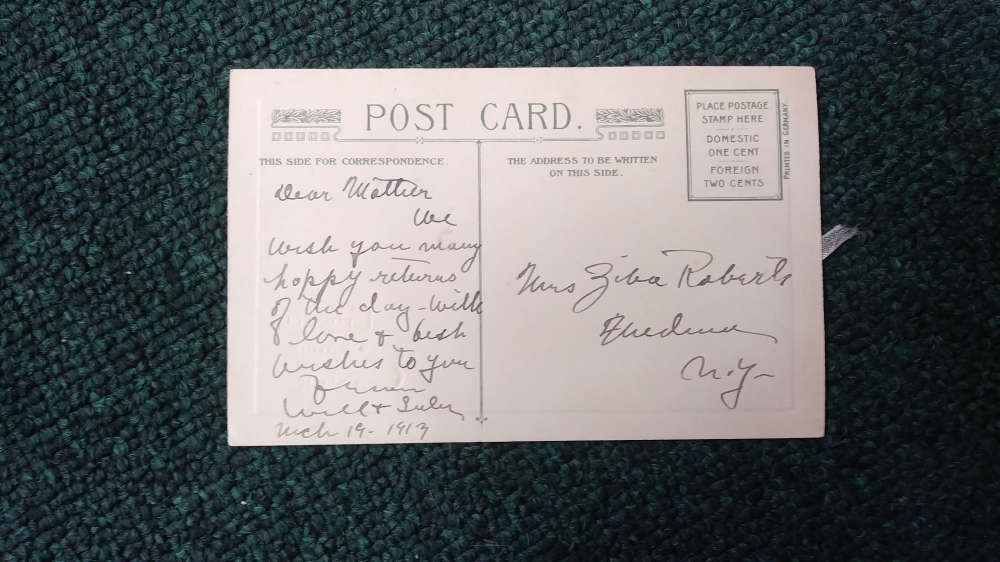 POST CARD.
THIS SIDE FOR CORRESPONDENCE.
THE ADDRESS TO BE WRITTEN
ON THIS SIDE.
PLACE POSTAGE
STAMP HERE
DOMESTIC
ONE CENT
FOREIGN
TWO CENTS
PRINTED IN GERMANY
Dear Mother
We
wish you many
happy returns
of the day - with
love & best
wishes to you
Will &
Mch 19 - 1913
Mrs Ziba Roberts
N.Y.